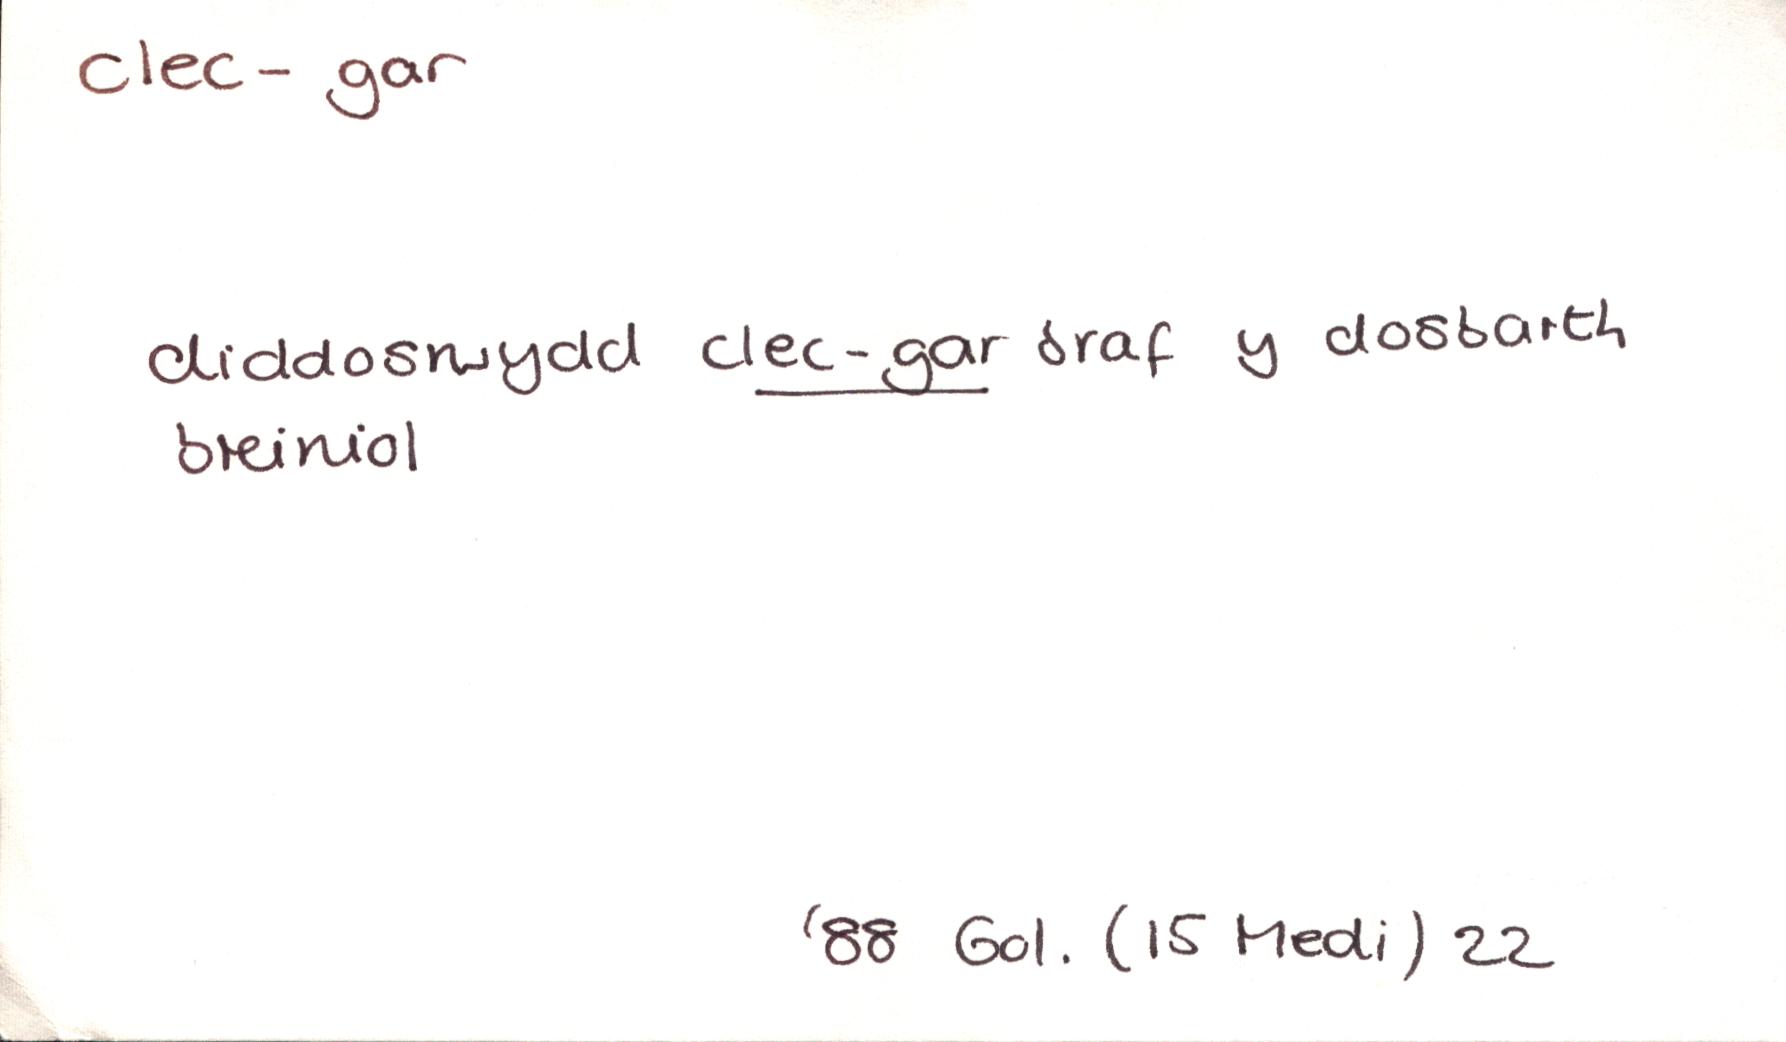 clec-gar
diddosrwydd clec-gar braf y dosbarth
breiniol
'88 Gol. (15 Medi) 22